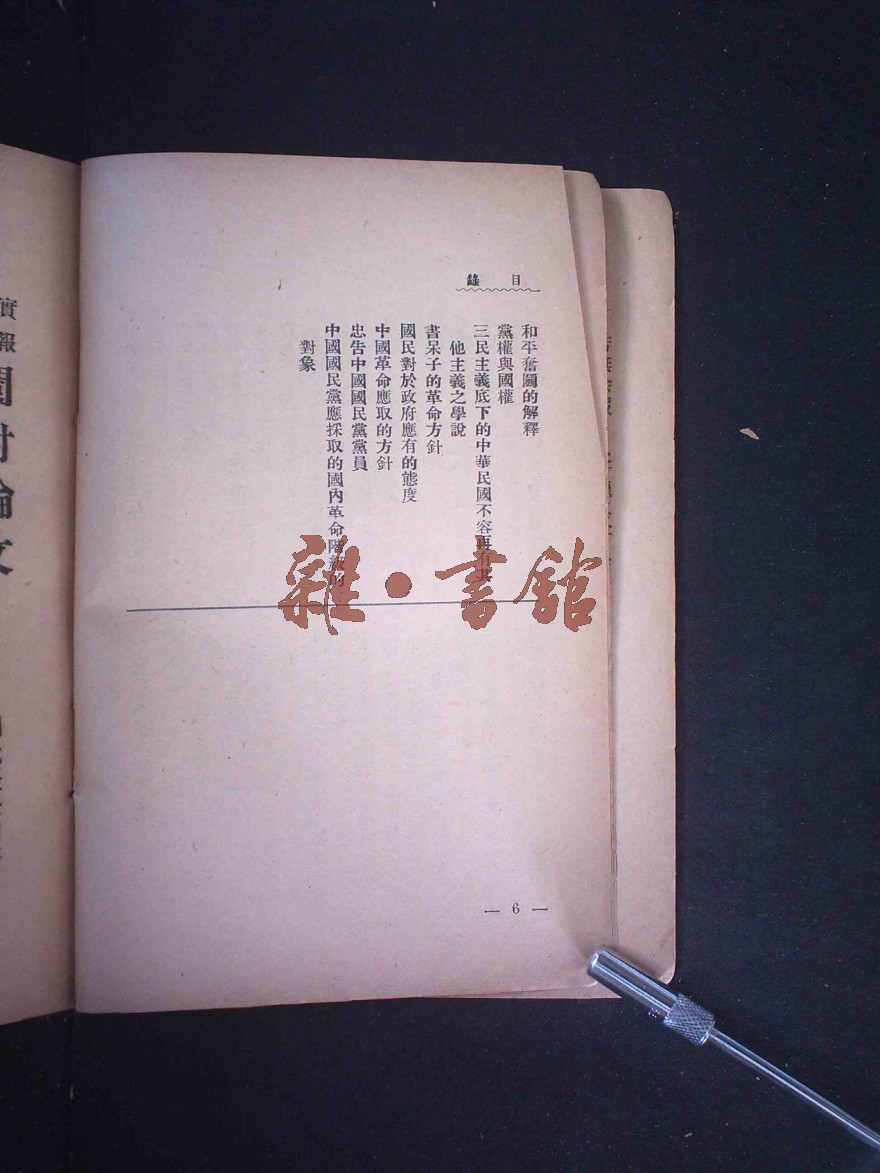 目錄
和平奮鬭的解釋
黨權與國權
三民主義底下的中華民國不容再有其
他主義之學說
書呆子的革命方針
國民對於政府應有的態度
中國革命應取的方針
忠告中國國民黨黨員
中國國民黨應採取的國內革命階級的
對象
— 6 —
雜·書館
實報